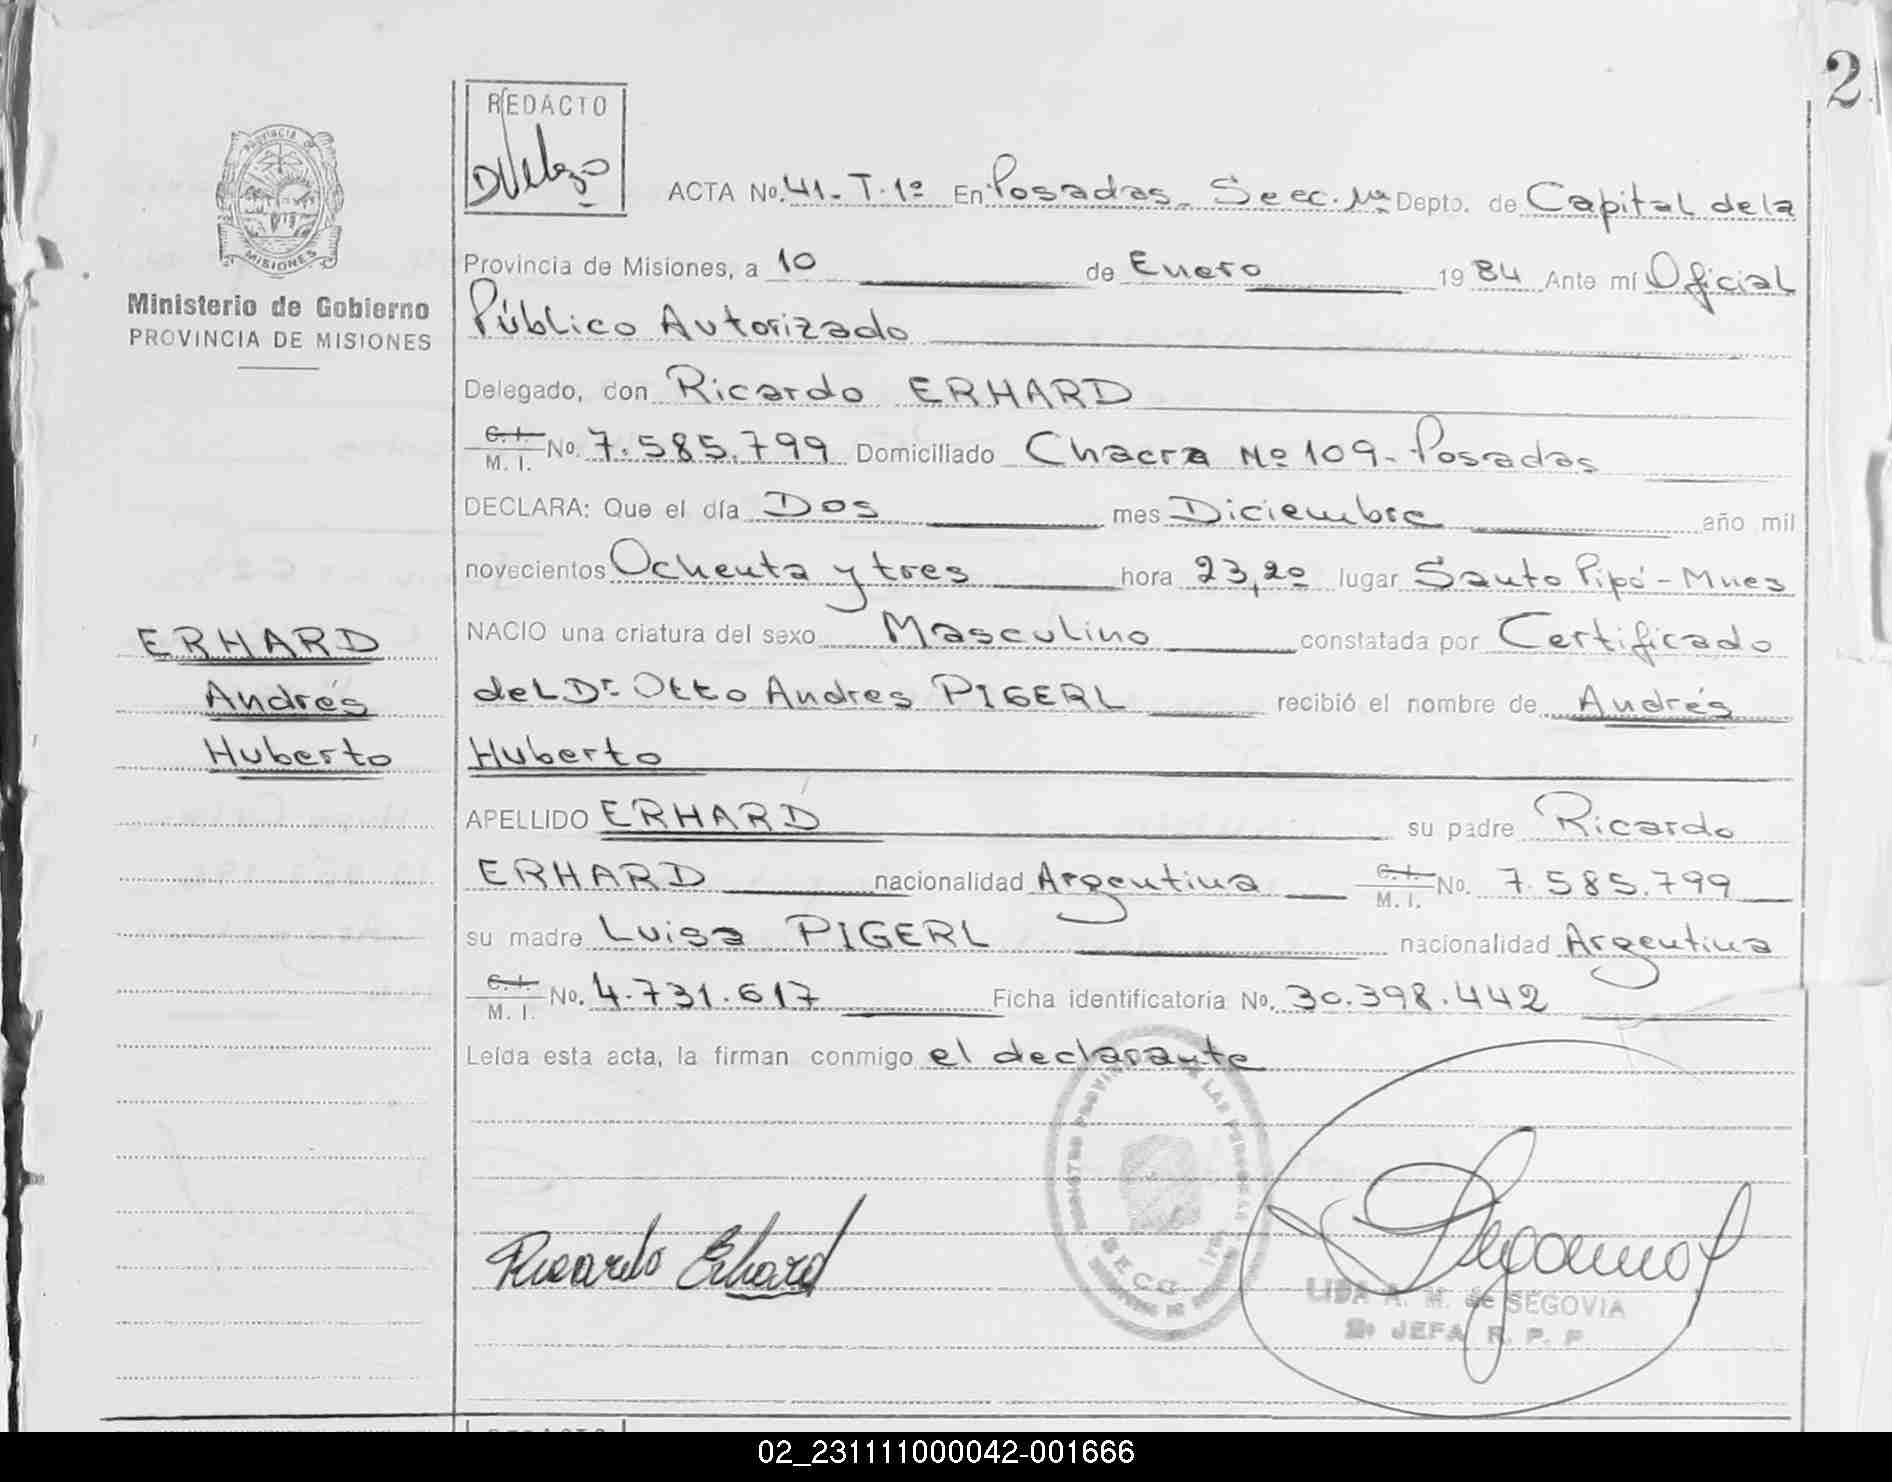 2
REDACTO
DVelazo
PROVINCIA
MISIONES
Ministerio de Gobierno
PROVINCIA DE MISIONES
ACTA No. 41-T.1º En Posadas- Secc. 1ra Depto. de Capital de la
Provincia de Misiones, a 10 de Enero 1984 Ante mí Oficial
Público Autorizado
Delegado, don Ricardo ERHARD
C. I. M. I. No. 7.585.799 Domiciliado Chacra Nº 109- Posadas
DECLARA: Que el día Dos mes Diciembre año mil
novecientos Ochenta y tres hora 23,20 lugar Santo Pipó - Mnes
NACIO una criatura del sexo Masculino constatada por Certificado
del Dr Otto Andres PIGERL recibió el nombre de Andrés
Huberto
ERHARD
Andrés
Huberto
APELLIDO ERHARD su padre Ricardo
ERHARD nacionalidad Argentina C. I. M. I. No. 7.585.799
su madre Luisa PIGERL nacionalidad Argentina
C. I. M. I. No. 4.731.617 Ficha identificatoria No. 30.398.442
Leída esta acta, la firman conmigo el declarante
Ricardo Erhard
SECC.
LIDA A. M. de SEGOVIA
2º JEFA R. P. P.
REDACTO
02_231111000042-001666